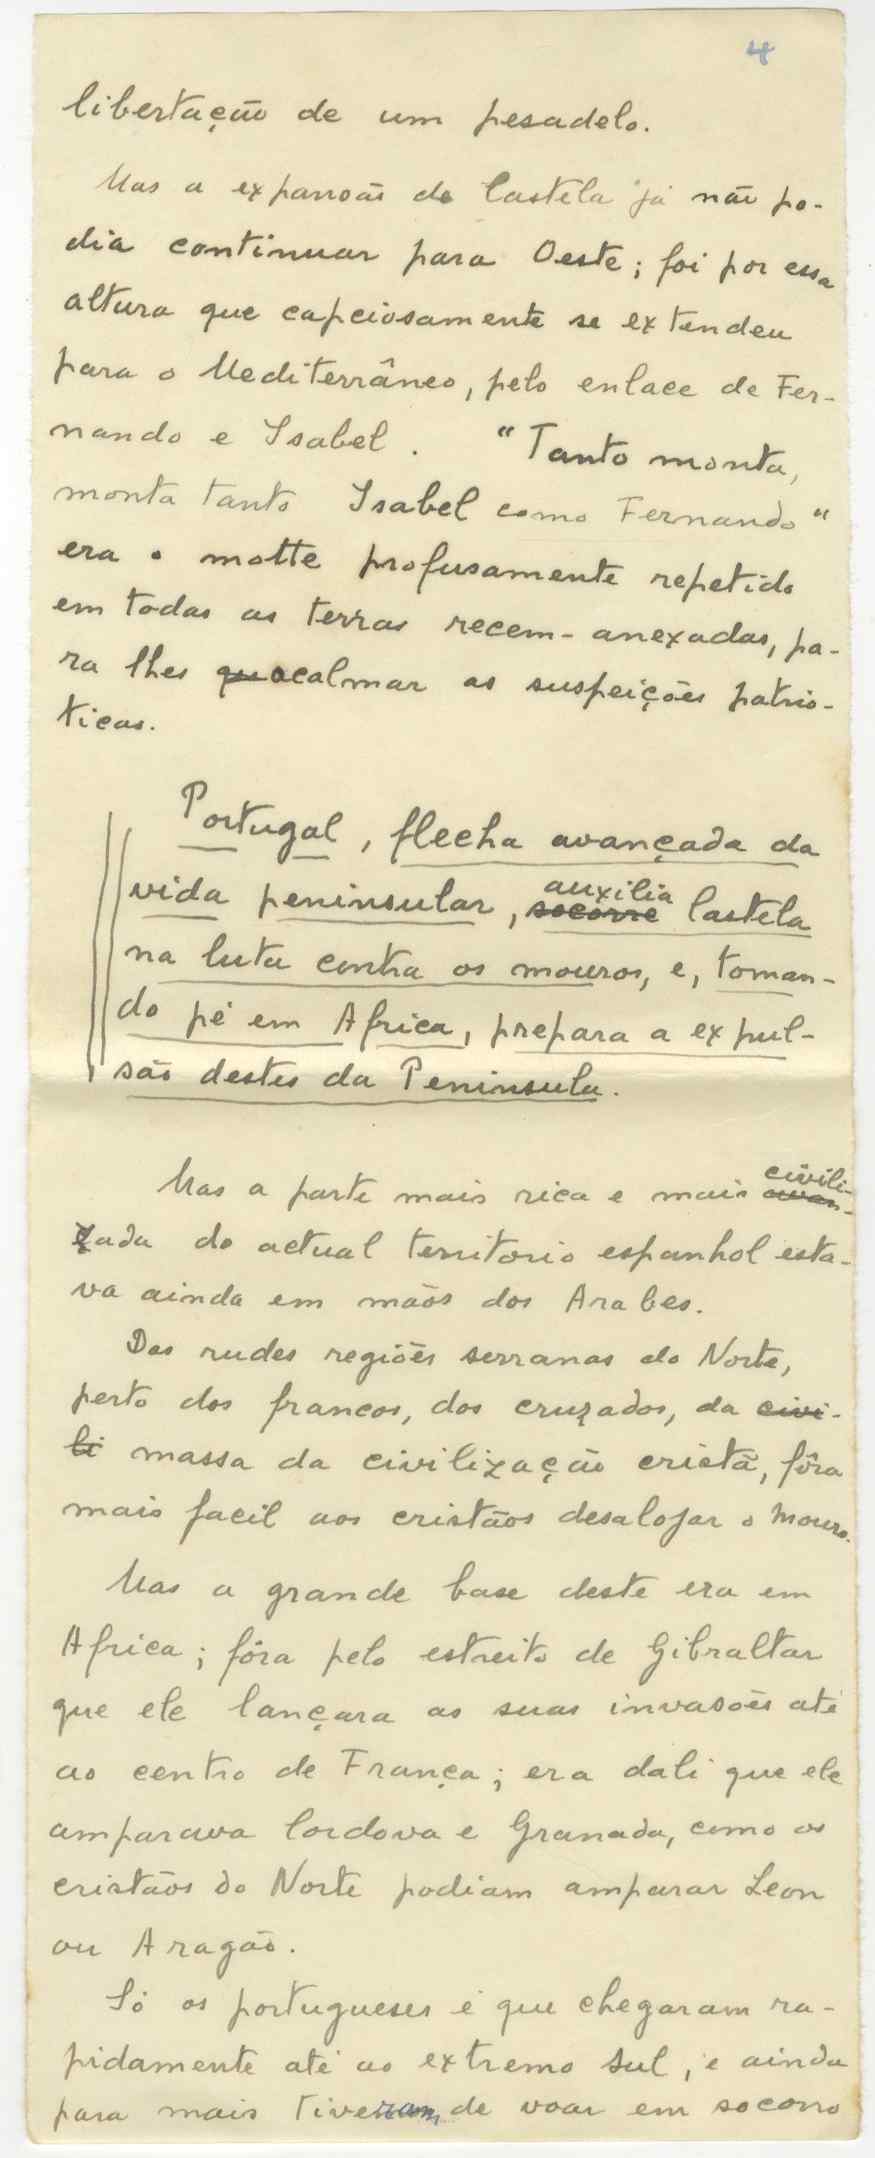 4
libertação de um pesadelo.
Mas a expansão de Castela já não po-
dia continuar para Oeste; foi por essa
altura que capciosamente se extendeu
para o Mediterrâneo, pelo enlace de Fer-
nando e Isabel. "Tanto monta,
monta tanto Isabel como Fernando"
era o motte profusamente repetido
em todas as terras recem-anexadas, pa-
ra lhes qu acalmar as suspeições patrio-
ticas.
Portugal, flecha avançada da
vida peninsular, socorre auxilia Castela
na luta contra os mouros, e, toman-
do pé em Africa, prepara a expul-
são destes da Peninsula.
Mas a parte mais rica e mais avan- civili-
zada do actual territorio espanhol esta-
va ainda em mãos dos Arabes.
Das rudes regiões serranas do Norte,
perto dos francos, dos cruzados, da civi-
li massa da civilização cristã, fôra
mais facil aos cristãos desalojar o mouro.
Mas a grande base deste era em
Africa; fôra pelo estreito de Gibraltar
que ele lançara as suas invasões até
ao centro de França; era dali que ele
amparava Cordova e Granada, como os
cristãos do Norte podiam amparar Leon
ou Aragão.
Só os portugueses é que chegaram ra-
pidamente até ao extremo sul, e ainda
para mais tiveram de voar em socorro